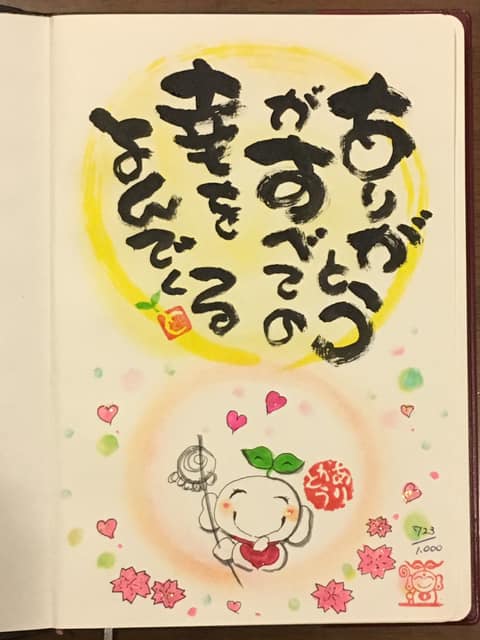 ありがとう
がすべての
幸を
よんでくる
ありがとう
723
1.000